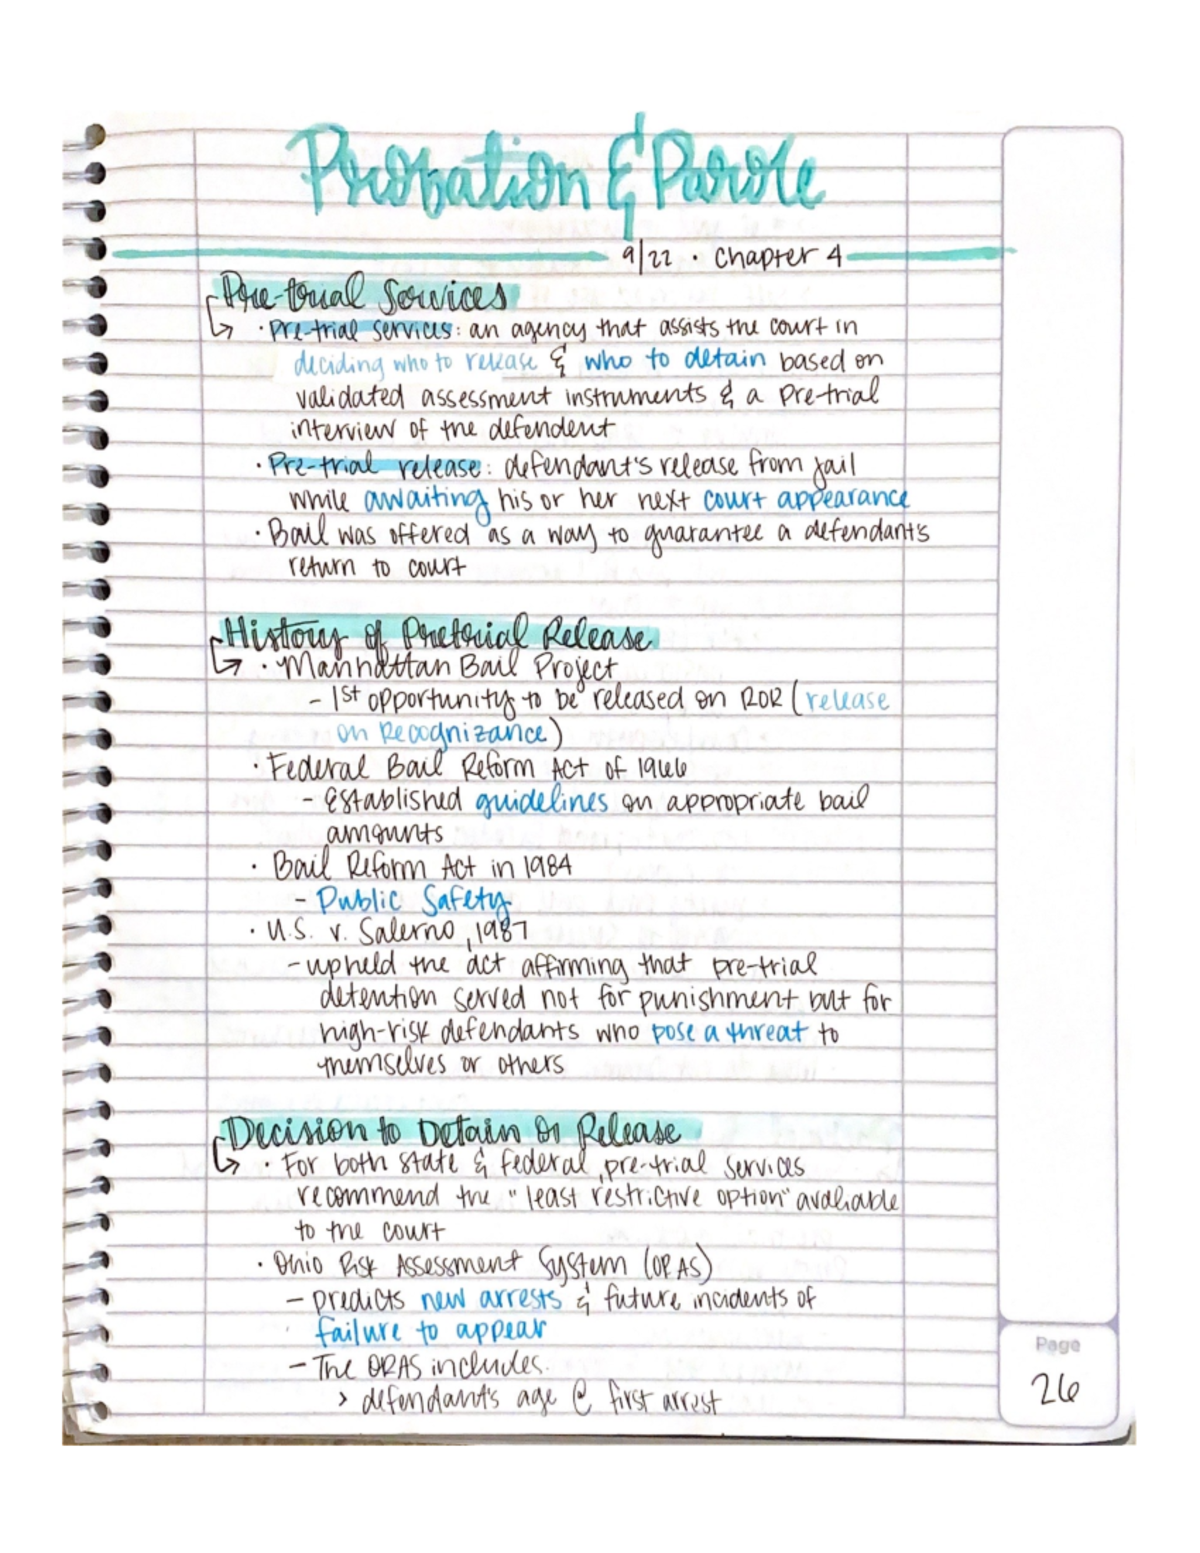 Probation & Parole
9/22 · Chapter 4
Pre-trial Services
· Pre-trial services: an agency that assists the court in
deciding who to release & who to detain based on
validated assessment instruments & a pre-trial
interview of the defendent
· Pre-trial release: defendant's release from jail
while awaiting his or her next court appearance
· Bail was offered as a way to guarantee a defendant's
return to court
History of Pretrial Release
· Manhattan Bail Project
- 1st opportunity to be released on ROR (release
on Recognizance)
· Federal Bail Reform Act of 1966
- Established guidelines on appropriate bail
amounts
· Bail Reform Act in 1984
- Public Safety
· U.S. v. Salerno, 1987
- upheld the act affirming that pre-trial
detention served not for punishment but for
high-risk defendants who pose a threat to
themselves or others
Decision to Detain or Release
· For both state & federal, pre-trial services
recommend the "least restrictive option" avaliable
to the court
· Ohio Risk Assessment System (ORAS)
- predicts new arrests & future incidents of
failure to appear
- The ORAS includes.
> defendant's age @ first arrest
Page
26